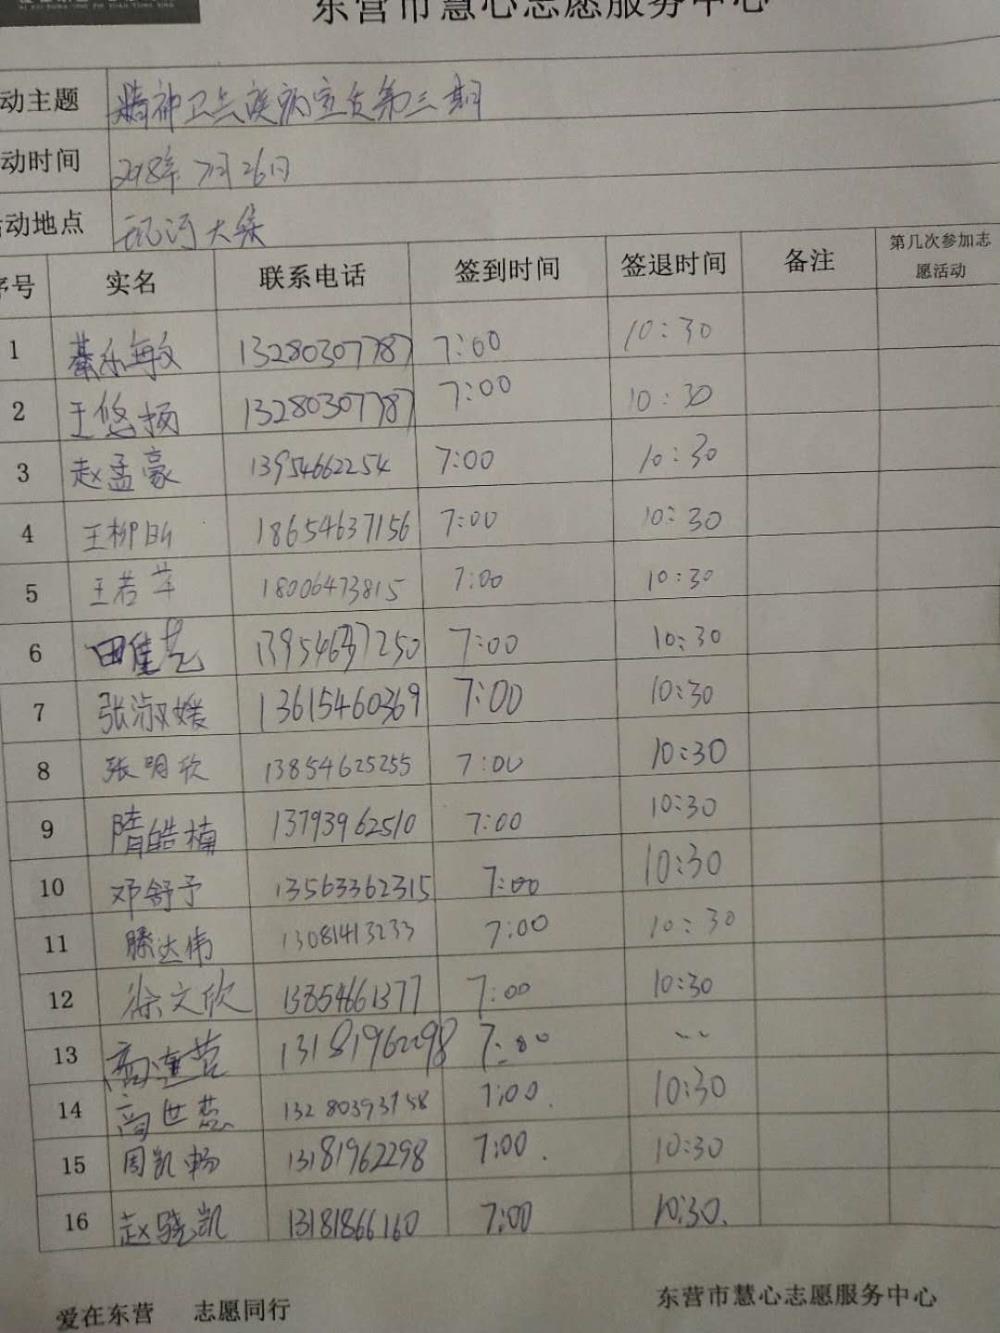 东营市慧心志愿服务中心
动主题 精神卫生疾病宣传第三期
动时间 2018年7月26日
活动地点 玑河大集
序号 实名 联系电话 签到时间 签退时间 备注 第几次参加志愿活动
1 綦乐敏 13280307787 7:00 10:30
2 王悠扬 13280307787 7:00 10:30
3 赵孟豪 13954662254 7:00 10:30
4 王柳 18654637156 7:00 10:30
5 王若苹 18006473815 7:00 10:30
6 田佳艺 13954637250 7:00 10:30
7 张淑媛 13615460369 7:00 10:30
8 张明欣 13854625255 7:00 10:30
9 隋皓楠 13793962510 7:00 10:30
10 邓舒予 13563362315 7:00 10:30
11 滕达伟 13081413233 7:00 10:30
12 徐文欣 13854661377 7:00 10:30
13 高莲芸 13181962298 7:00
14 高世蕊 13280393758 7:00. 10:30
15 周凯畅 13181962298 7:00. 10:30
16 赵骁凯 13181866160 7:00 10:30.
爱在东营 志愿同行 东营市慧心志愿服务中心